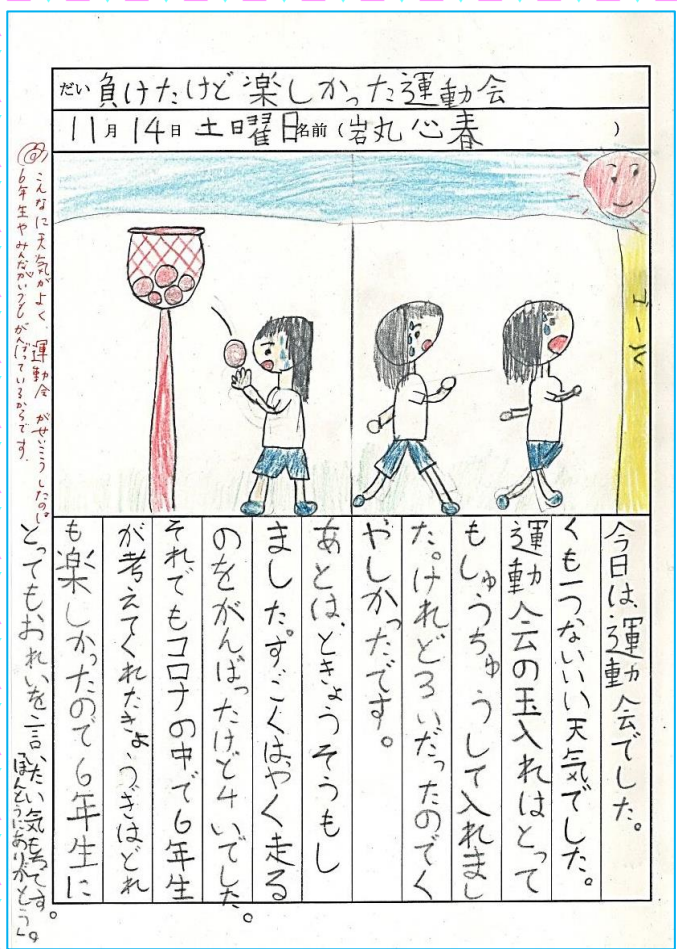 だい 負けたけど楽しかった運動会
11月14日 土曜日 名前(岩丸心春)
ゴール
今日は、運動会でした。
くも一つないいい天気でした。
運動会の玉入れはとって
もしゅうちゅうして入れまし
た。けれど3いだったのでく
やしかったです。
あとは、ときょうそうもし
ました。すごくはやく走る
のをがんばったけど4いでした。
それでもコロナの中で6年生
が考えてくれたきょうぎはどれ
も楽しかったので6年生に
とってもおれいを言いたい気もちです。
「ほんとうにありがとう」。
こんなに天気がよく、運動会がせいこうしたのは
6年生やみんながいつもがんばっているからです。